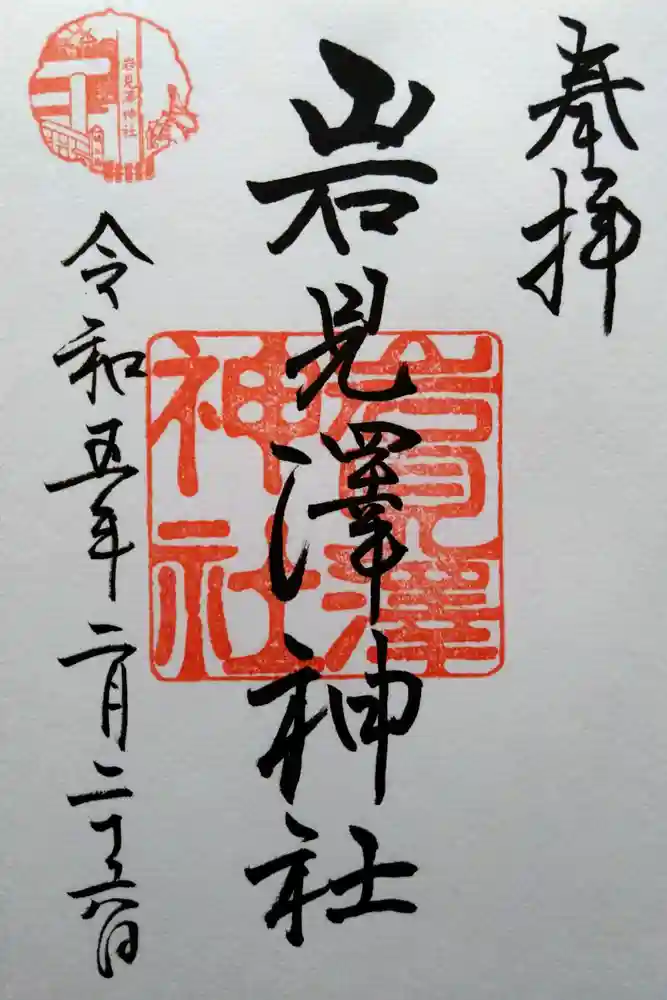 奉拝
岩見澤神社
岩見澤神社
令和五年二月二十六日
岩見澤神社